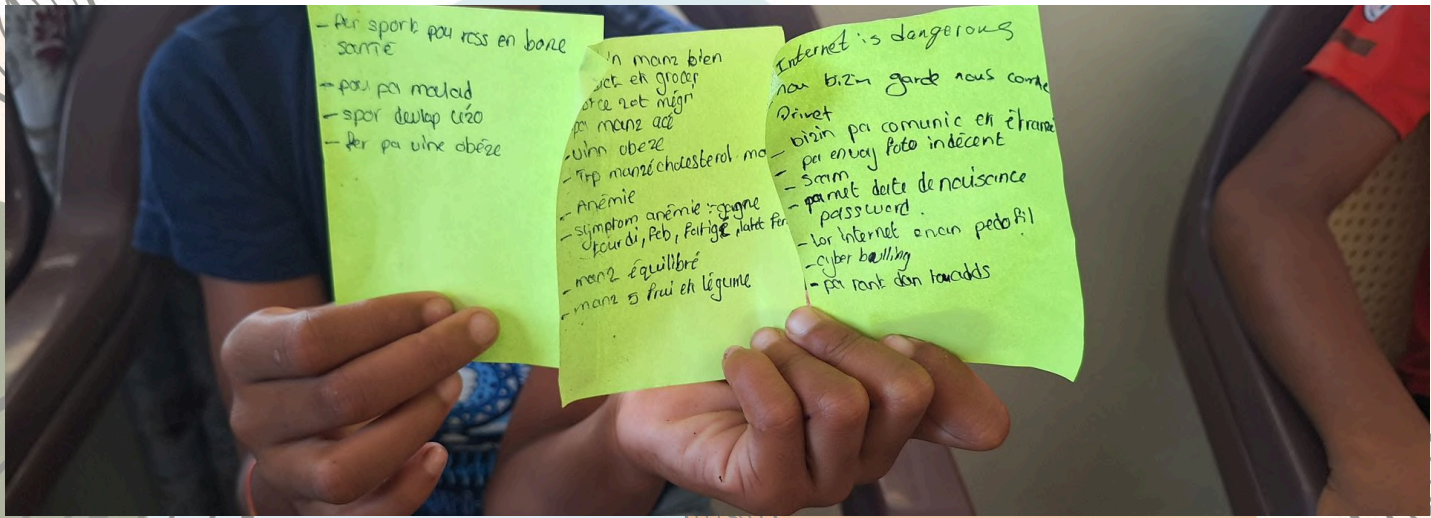 - fer sport pou ress en bone
santé
- pou pa malad
- spor devlap
- fer pa vine obéze
n manz bien
ek grocer
zot mégr
pa manz
- vinn obeze
- Trp manzé cholesterol mo
- Anémie
- symptom anémie : gagne
tourdi, feb, fatigé, latet fer
- manz équilibré
- manz 5 frui ek légume
Internet is dangerous
nou bizin garde nous conte
Privet
- bizin pa comunic ek étranzé
- pa envoy foto indécent
- scam
- pa met date de naisance
password.
- lor internet enan pedofil
- cyber bulling
- pa rant dan